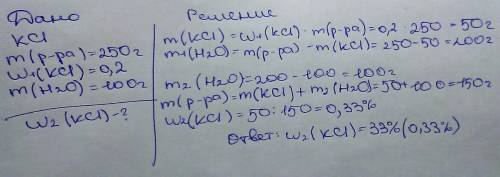 Дано
KCl
m(р-ра)=250г
w₁(KCl)=0,2
m(H₂O)=100г
w₂(KCl)-?
Решение
m(KCl)=w₁(KCl)·m(р-ра)=0,2·250=50г
m₁(H₂O)=m(р-ра)-m(KCl)=250-50=200г
m₂(H₂O)=200-100=100г
m(р-ра)=m(KCl)+m₂(H₂O)=50+100=150г
w₂(KCl)=50:150=0,33%
Ответ: w₂(KCl)=33%(0,33%)